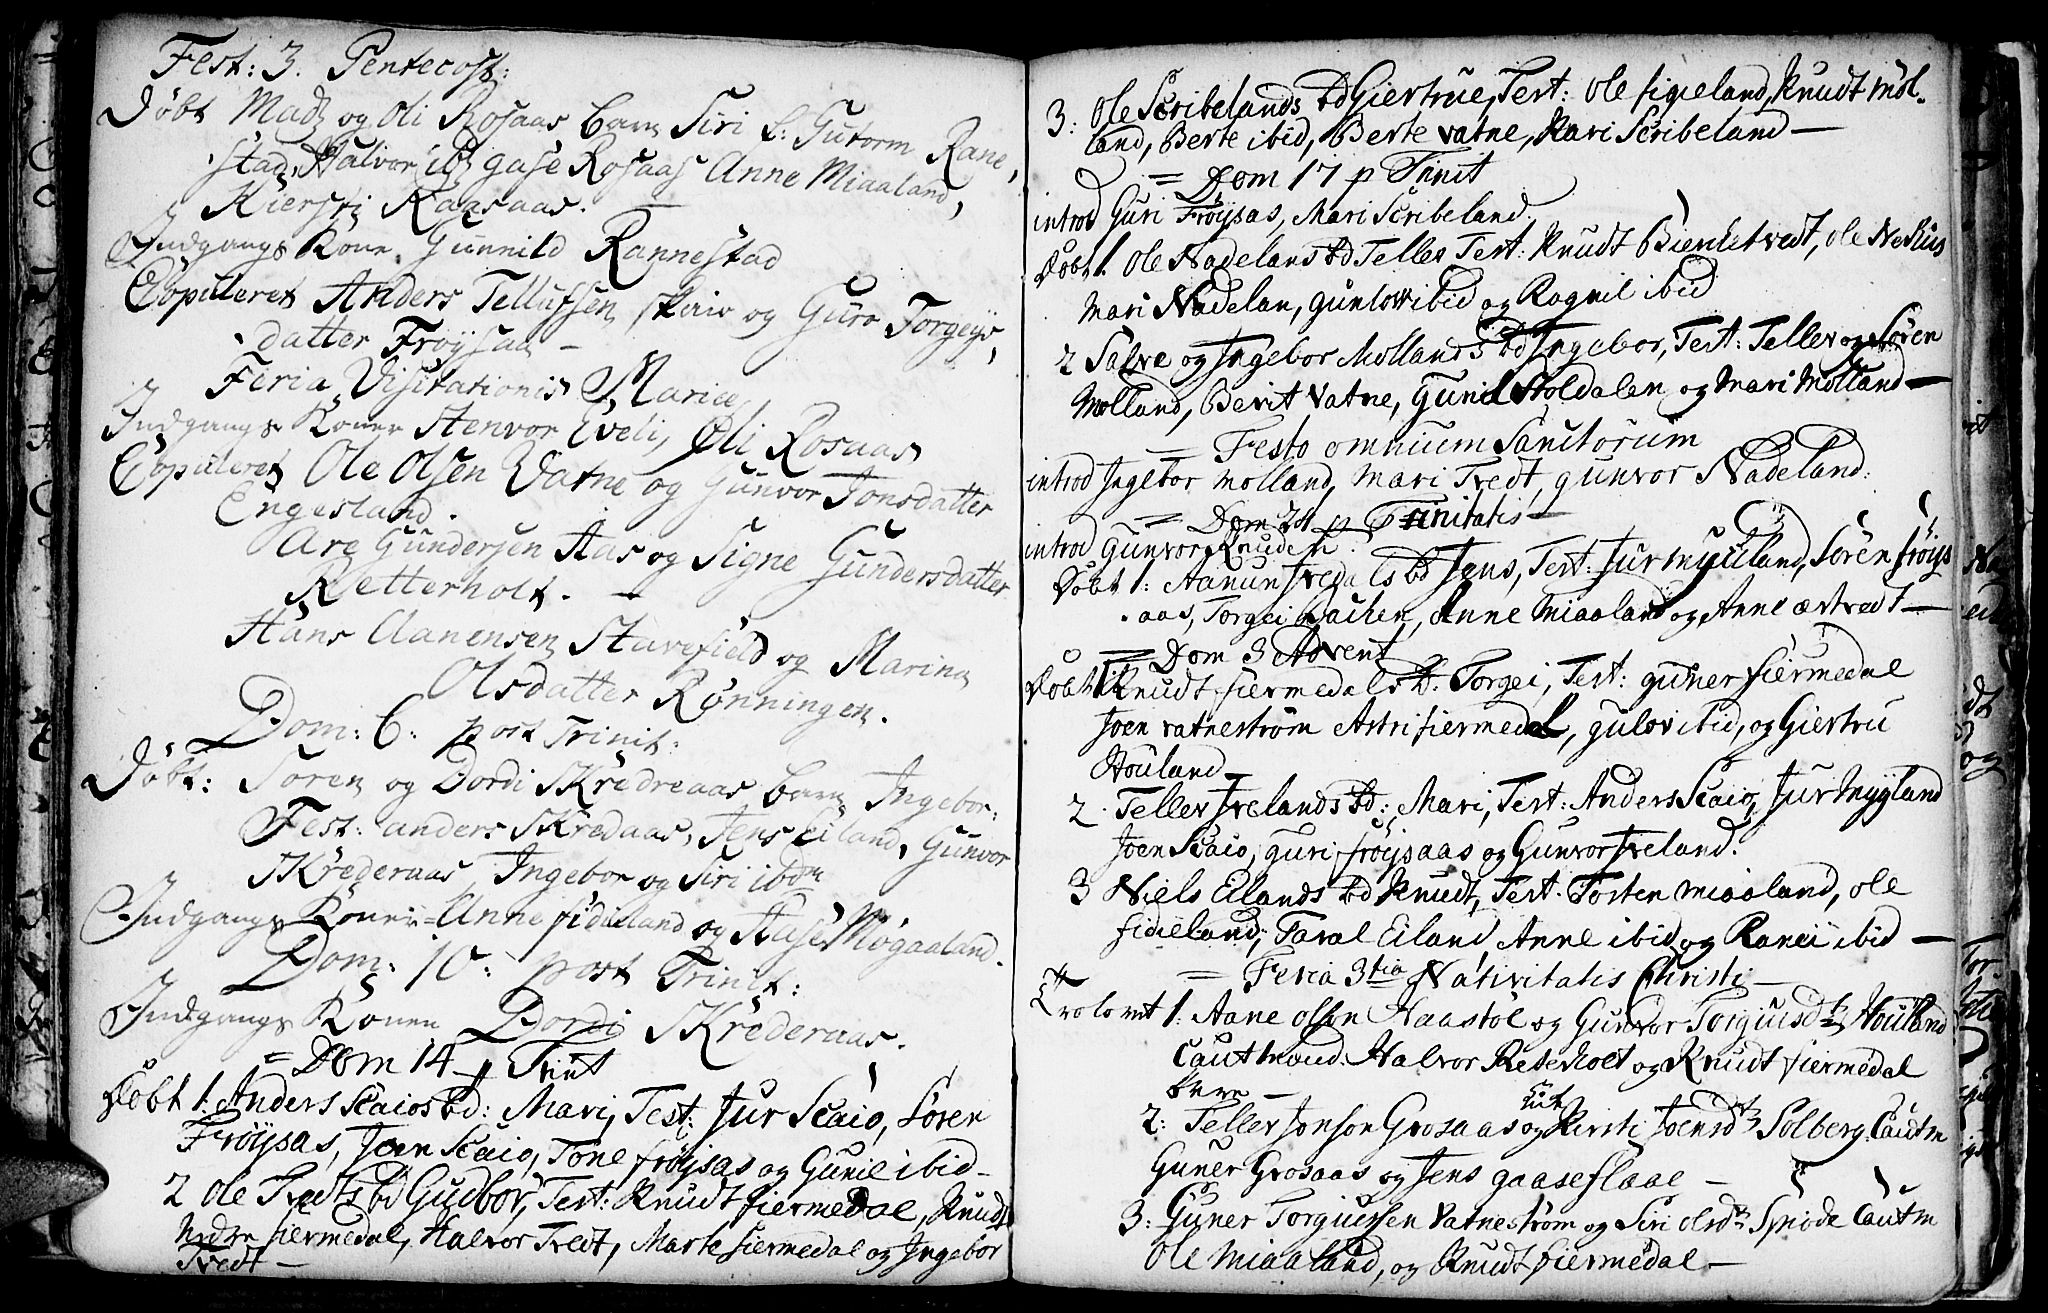 Fest: 3. Pentecost:
Døbt Mads og Oli Rosaas barn Siri f: Gutorm Rane,
stad, Halvor ibd Aase Rosaas Anne Miaaland,
Kiersti Raasaas. —
Indgangs Kone. Gunnild Rannestad
Copuleret Anders Tellufsen skaio og Guro Torgeys,
datter Frøysaa —
Feria Visitationis Mariæ
Indgangs Koner Stenvor Eveli, Oli Rosaas
Copuleret Ole Olsen Vatne og Gunvor Jonsdatter
Engesland.
Are Gundersen Aas og Signe Gundersdatter
Retterholt. —
Hans Aanensen Stavefield og Marina
Olsdatter Rønningen.
Dom: 6: post Trinit:
Døbt: Søren og Dordi SKredreaas barn Ingebor:
Fest: anders SKredaas, Jens Eiland, Gunvor
SKrederaas Ingebor og Siri ibdm
Indgangs Koner = Anne fidieland og Aase Møgaaland.
Dom: 10: post Trinit:
Indgangs Konen Dordi SKrederaas.
= Dom 14 p Trinit
Døbt 1. Anders Scaios bd: Mari, Test: Jur Scaio, Sören
Fröysas, Joen Scaio, Tone fröysas og Gunil ibid —
2 Ole Tvedts bd Gudbor, Test: Knudt fiermedal, Knudt
nedre fiermedal, Halvor Tvedt, Marte fiermedal og Ingebor
Tvedt —
3: Ole Scribelands bd Giertrue, Test: Ole figieland, Knudt möl-
land, Berte ibid, Berte vatne, Kari Scribeland —
= Dom 17 p Trinit
introd Guri Fröysas, Mari Scribeland.
Döbt 1. Ole Nadelans bd Telles Test: Knudt Bierketvedt, Ole Neskus
Mari Nadelan, gunlow ibid og Rognil ibid
2 Salve og Ingebor Mollands bd Ingebor, Test: Tellev og Sören
Molland, Berit Vatne, Gunil Stoldalen og Mari Molland —
= Festo omnium Sanctorum
introd Ingebor molland, Mari Tvedt, gunvor Nadeland:
= Dom 24 p Trinitatis —
introd Gunvor
Döbt 1: Aanun Tredals bd Jens, Test: Jur mygland, Sören fröys
aas, Torgei Bachen, Anne Miaaland og Anne ærtvedt —
= Dom 3 Advent
Döbt 1 Knudt fiermedals b: Torgei, Test: guner fiermedal
Joen vatneström Astri fiermedal, gulov ibid, og Giertru
Houland
2. Tellef Irelands bd: Mari, Test: Anders Scaio, Jur Mygland
Joen Scaio, guri fröysaas og Gunvor Ireland.
3 Niels Eilands bd Knudt, Test. Tosten miaaland, ole
fidieland, Taral Eiland, Anne ibid og Ranei ibid —
= Feria 3tia Nativitatis Christi —
Trolovet 1. Aane Olson Haastöl og Gunvor Torgiusdtr Houland
Cautmend: Halvor Reteholt og Knudt fiermedal
2: Tellef Jonson Grosaas og Kirsti Joensdtr Solberg. Cautm
Guner Grosaas og Jens gaaseflaae —
3: Guner Torgiussen Vatneström og Siri olsdtr Spiöde Cautm
Ole Miaaland, og Knudt fiermedal —